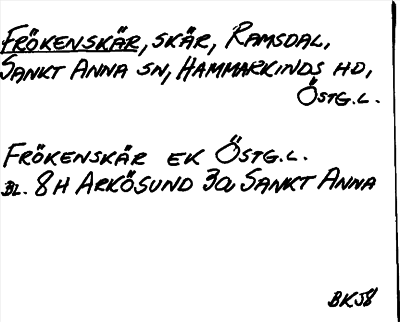 FRÖKENSKÄR, SKÄR, RAMSDAL,
SANKT ANNA SN, HAMMARKINDS HD,
ÖSTG.L.
FRÖKENSKÄR EK ÖSTG.L.
BL. 8H ARKÖSUND 3a, SANKT ANNA
BK58